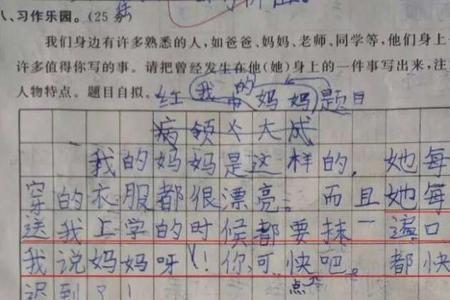 八、习作乐园。(25分
我们身边有许多熟悉的人,如爸爸、妈妈、老师、同学等,他们身上
许多值得你写的事。请把曾经发生在他(她)身上的一件事写出来,注
人物特点。题目自拟。红 我的妈妈 题目
病领火大成
我的妈妈是这样的,她每
穿的衣服都很漂亮。而且她每
送我上学的时候都要抹一 口
我说妈妈呀!你可快点吧。都快
迟到?!